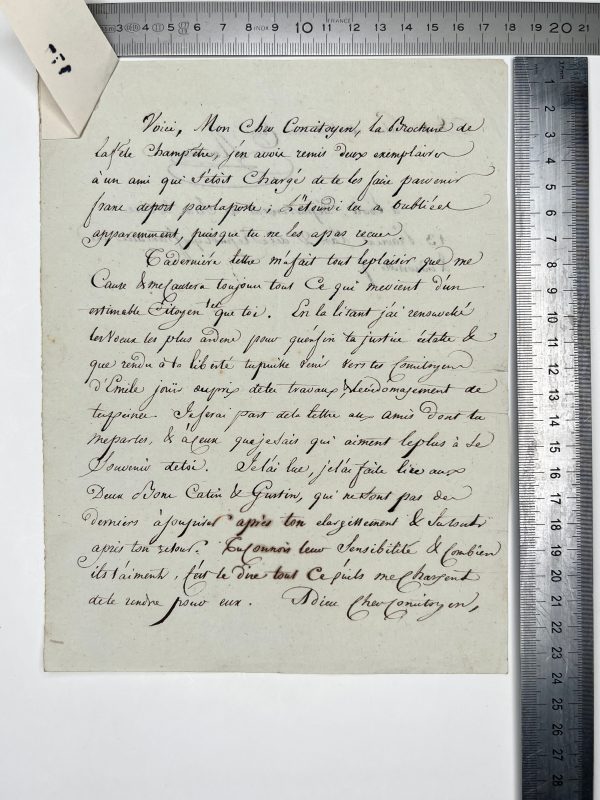 Voici, Mon Cher Concitoyen, la Brochure de
la fete Champêtre, j'en avois remis deux exemplaires
à un ami qui s'étoit Chargé de te les faire parvenir
franc deport par la poste; L'étourdi les a oubliées
apparemment, puisque tu ne les a pas recues
Ta derniere lettre m'a fait tout le plaisir que me
Cause & me Causera toujours tout Ce qui me vient d'un
estimable Citoyen tel que toi. En la lisant j'ai renouvellé
les voeux les plus ardens pour qu'enfin ta justice éclate &
que rendu à la liberté tu puisse venir vers tes Concitoyens
d'Emile jouir du prix de tes travaux & dédomagement de
tes peines. Je ferai part de ta lettre aux amis dont tu
me parles, & à Ceux que je sais qui aiment le plus à se
Souvenir de toi. Je l'ai lue, je l'ai faite lire aux
Deux Bons Catin & Gustin, qui ne sont pas des
derniers à soupirer après ton elargissement &
après ton retour. Tu Connois leur Sensibilité & Combien
ils t'aiment, C'est te dire tout Ce qu'ils me Chargent
de te rendre pour eux. Adieu Cher Concitoyen,
FRANCE
INOX
3 4 5 6 7 8 9 10 11 12 13 14 15 16 17 18 19 20 21
1 2 3 4 5 6 7 8 9 10 11 12 13 14 15 16 17 18 19 20 21 22 23 24 25 26 27 28